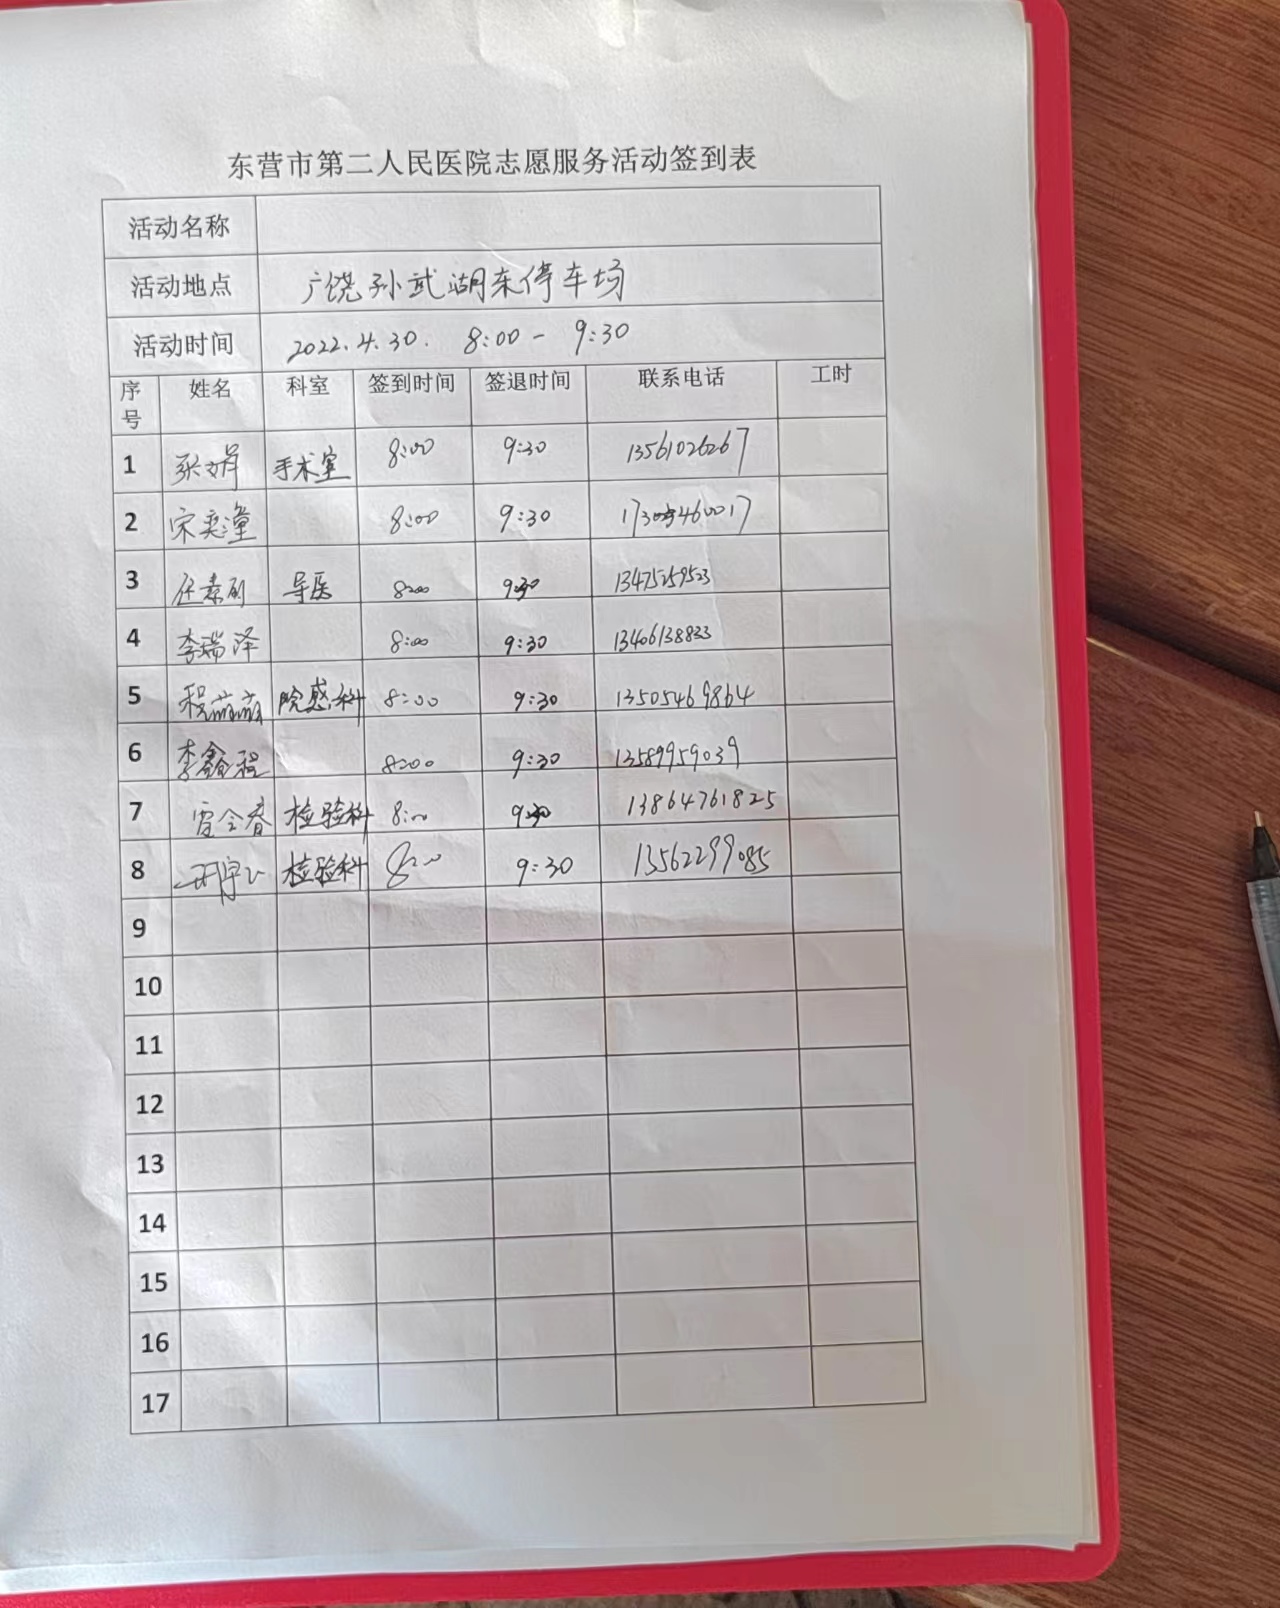 东营市第二人民医院志愿服务活动签到表
活动名称
活动地点 广饶孙武湖东停车场
活动时间 2022.4.30. 8:00 - 9:30
序号 姓名 科室 签到时间 签退时间 联系电话 工时
1 张娟 手术室 8:00 9:30 13561026267
2 宋奕潼 8:00 9:30 17305460017
3 任素 导医 8:00 9:30 13475259523
4 李瑞泽 8:00 9:30 13406138833
5 程萌萌 院感科 8:00 9:30 13505469864
6 李鑫程 8:00 9:30 13589959039
7 春 检验科 8:00 9:30 13864761825
8 检验科 8:00 9:30 13562299085
9
10
11
12
13
14
15
16
17